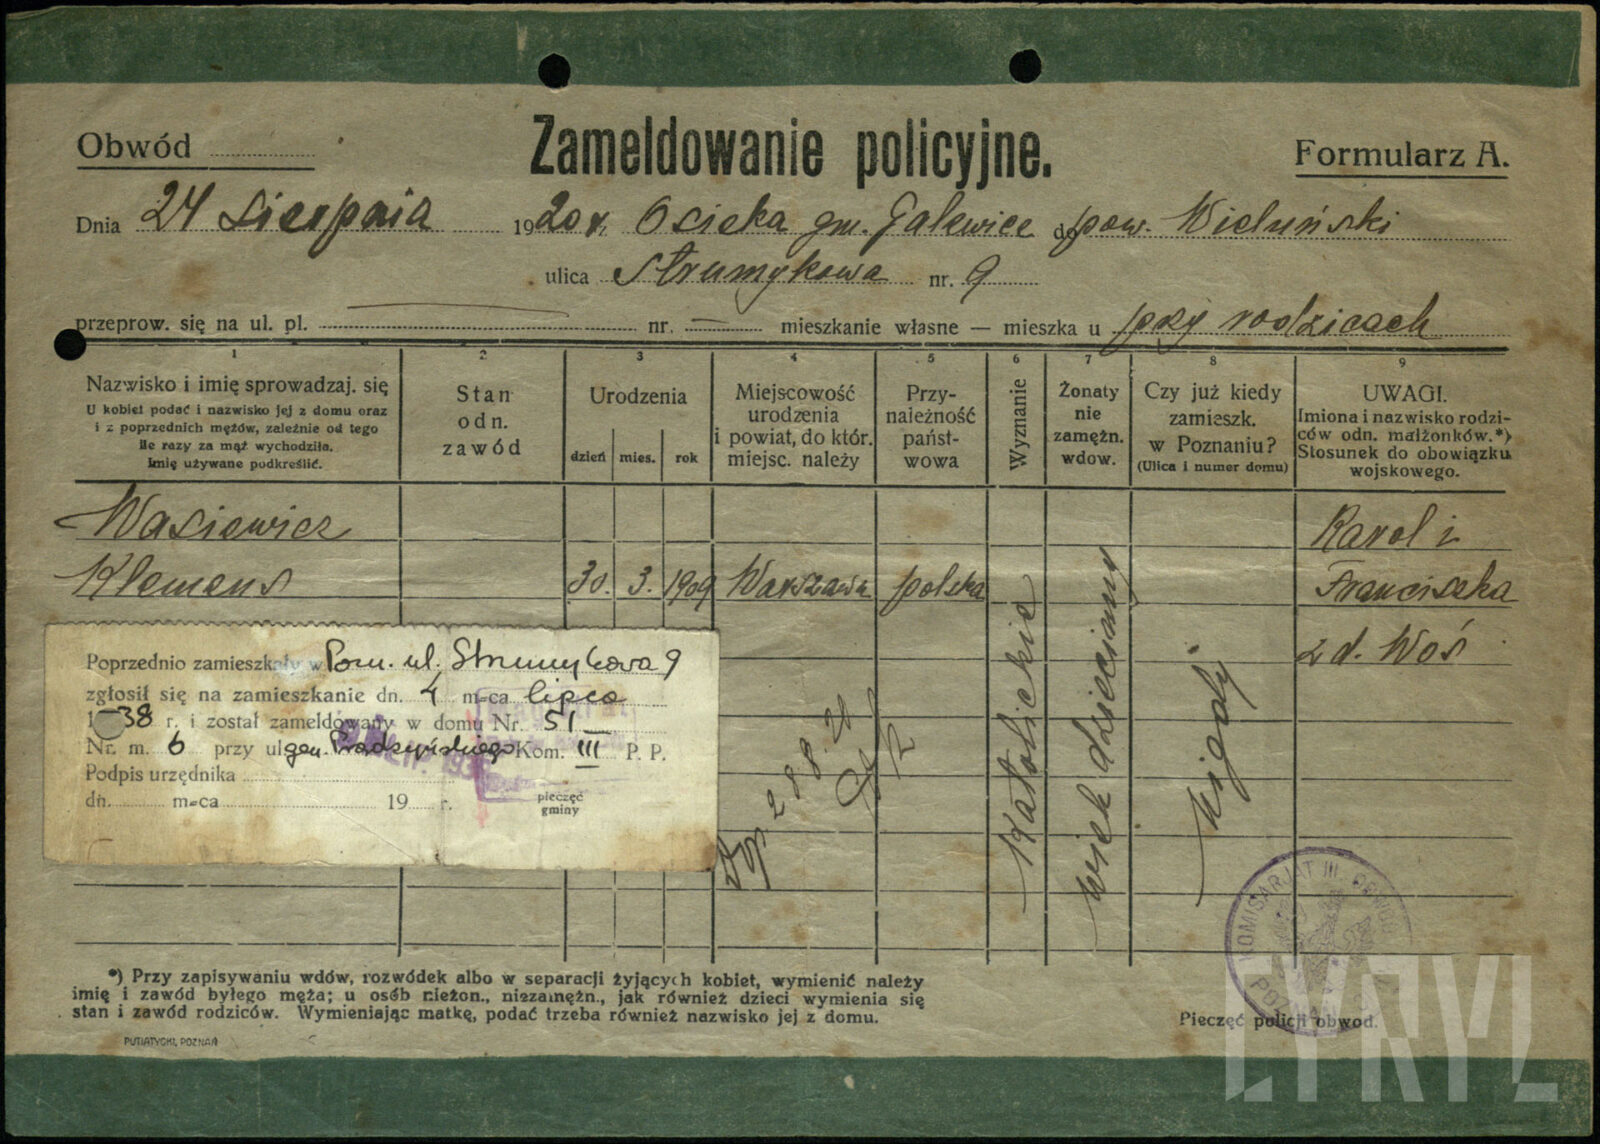 Obwód
Zameldowanie policyjne.
Formularz A.
Dnia 24 sierpnia 1920 r. Osieka gm. Galewice do pow. Wieluński
ulica Strumykowa nr. 9
przeprow. się na ul. pl. — nr. — mieszkanie własne — mieszka u przy rodzicach
1 2 3 4 5 6 7 8 9
Nazwisko i imię sprowadzaj. się
U kobiet podać i nazwisko jej z domu oraz
i z poprzednich mężów, zależnie od tego
ile razy za mąż wychodziła.
Imię używane podkreślić.
Stan
odn.
zawód
Urodzenia
dzień mies. rok
Miejscowość
urodzenia
i powiat, do któr.
miejsc. należy
Przy-
należność
państ-
wowa
Wyznanie
Żonaty
nie
zamężn.
wdow.
Czy już kiedy
zamieszk.
w Poznaniu?
(Ulica i numer domu)
UWAGI.
Imiona i nazwisko rodzi-
ców odn. małżonków.*)
Stosunek do obowiązku
wojskowego.
Wasiewicz
Klemens 30. 3. 1909 Warszawa polska
Katolickie
wiek dziecinny
nigdy
Karol i
Franciszka
z d. Woś
Poprzednio zamieszkały w Pozn. ul. Strumykowa 9
zgłosił się na zamieszkanie dn. 4 m-ca lipca
1938 r. i został zameldowany w domu Nr. 51
Nr. m. 6 przy ul gen. Prądzyńskiego Kom. III P. P.
Podpis urzędnika
dn. m-ca 19 r.
pieczęć
gminy
28.8.20
KOMISARJAT III. OBWODU
POZNAŃ
*) Przy zapisywaniu wdów, rozwódek albo w separacji żyjących kobiet, wymienić należy
imię i zawód byłego męża; u osób nieżon., niezamężn., jak również dzieci wymienia się
stan i zawód rodziców. Wymieniając matkę, podać trzeba również nazwisko jej z domu.
Pieczęć policji obwod.
PUTIATYCKI, POZNAŃ
CYRYL